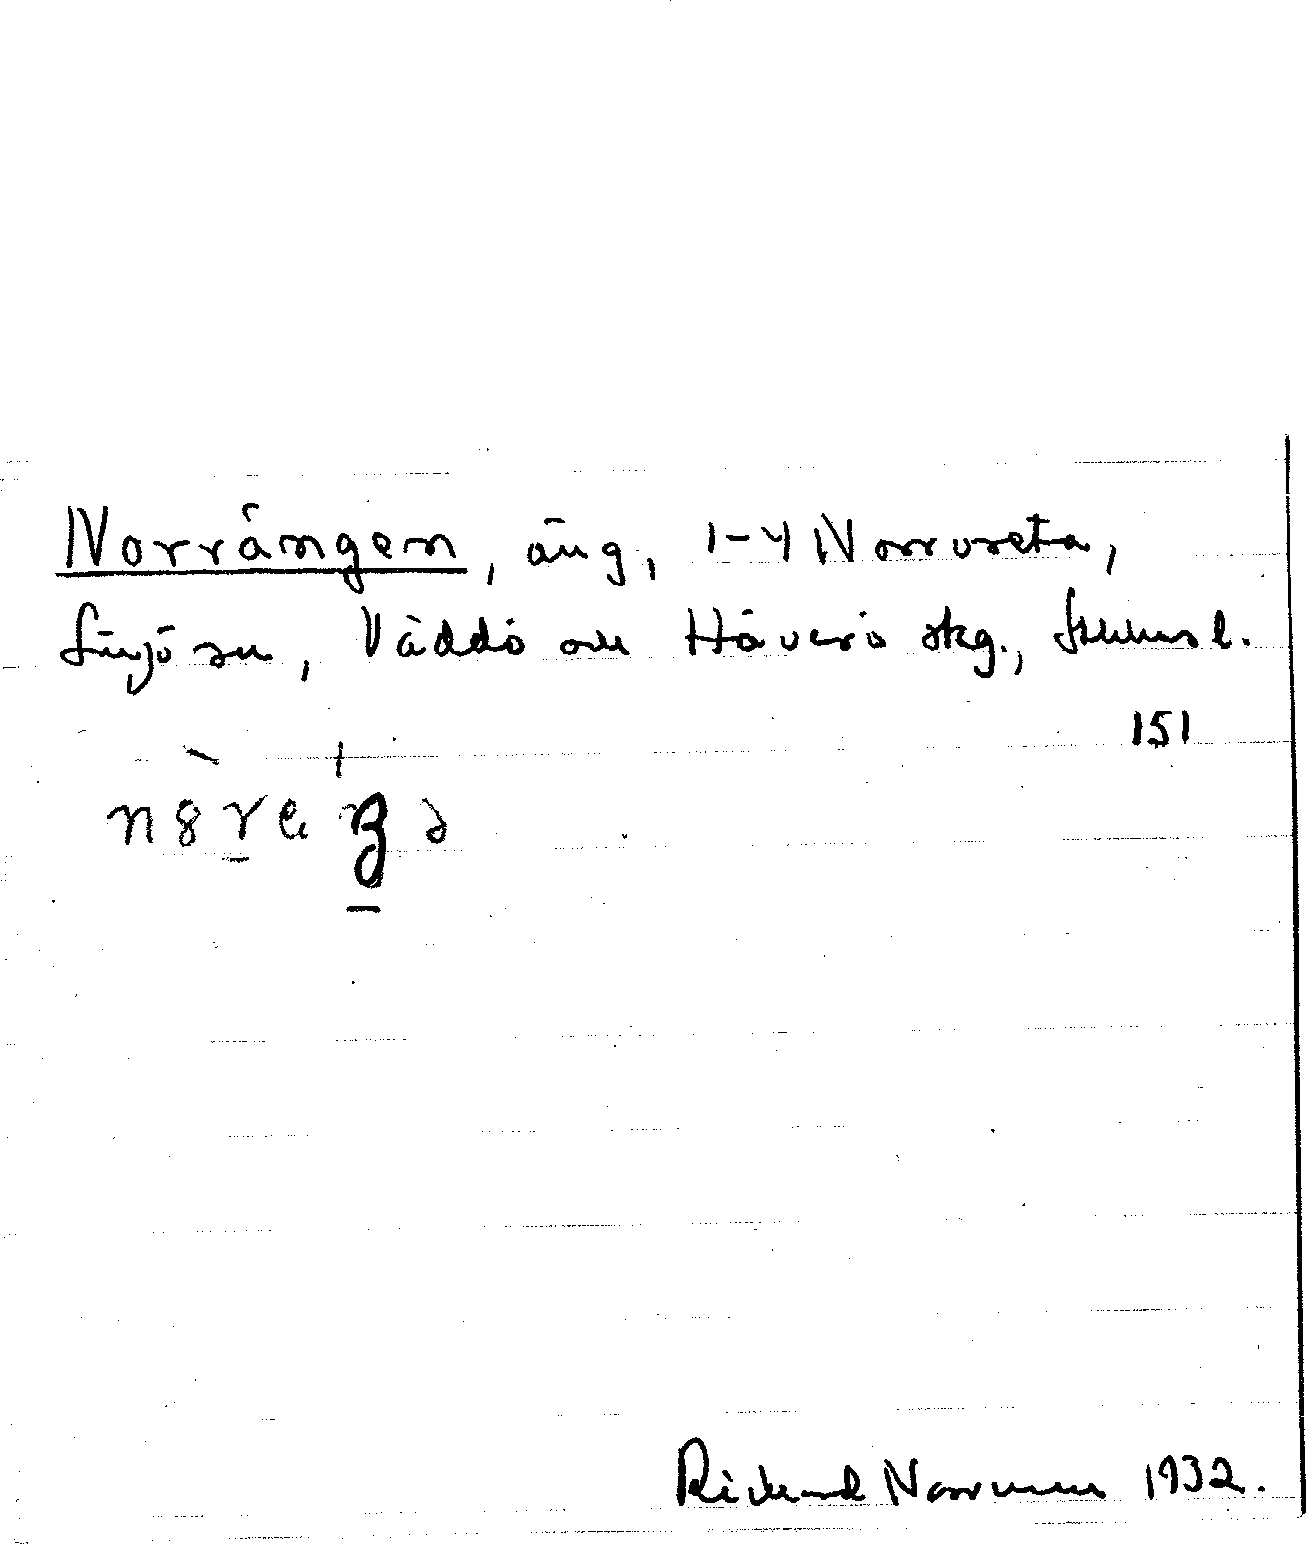 Norrängen, äng, 1-4 Norrvreta,
Singö sn, Väddö och Häverö skg., Sthlms l.
151
Rickard Norrman 1932.